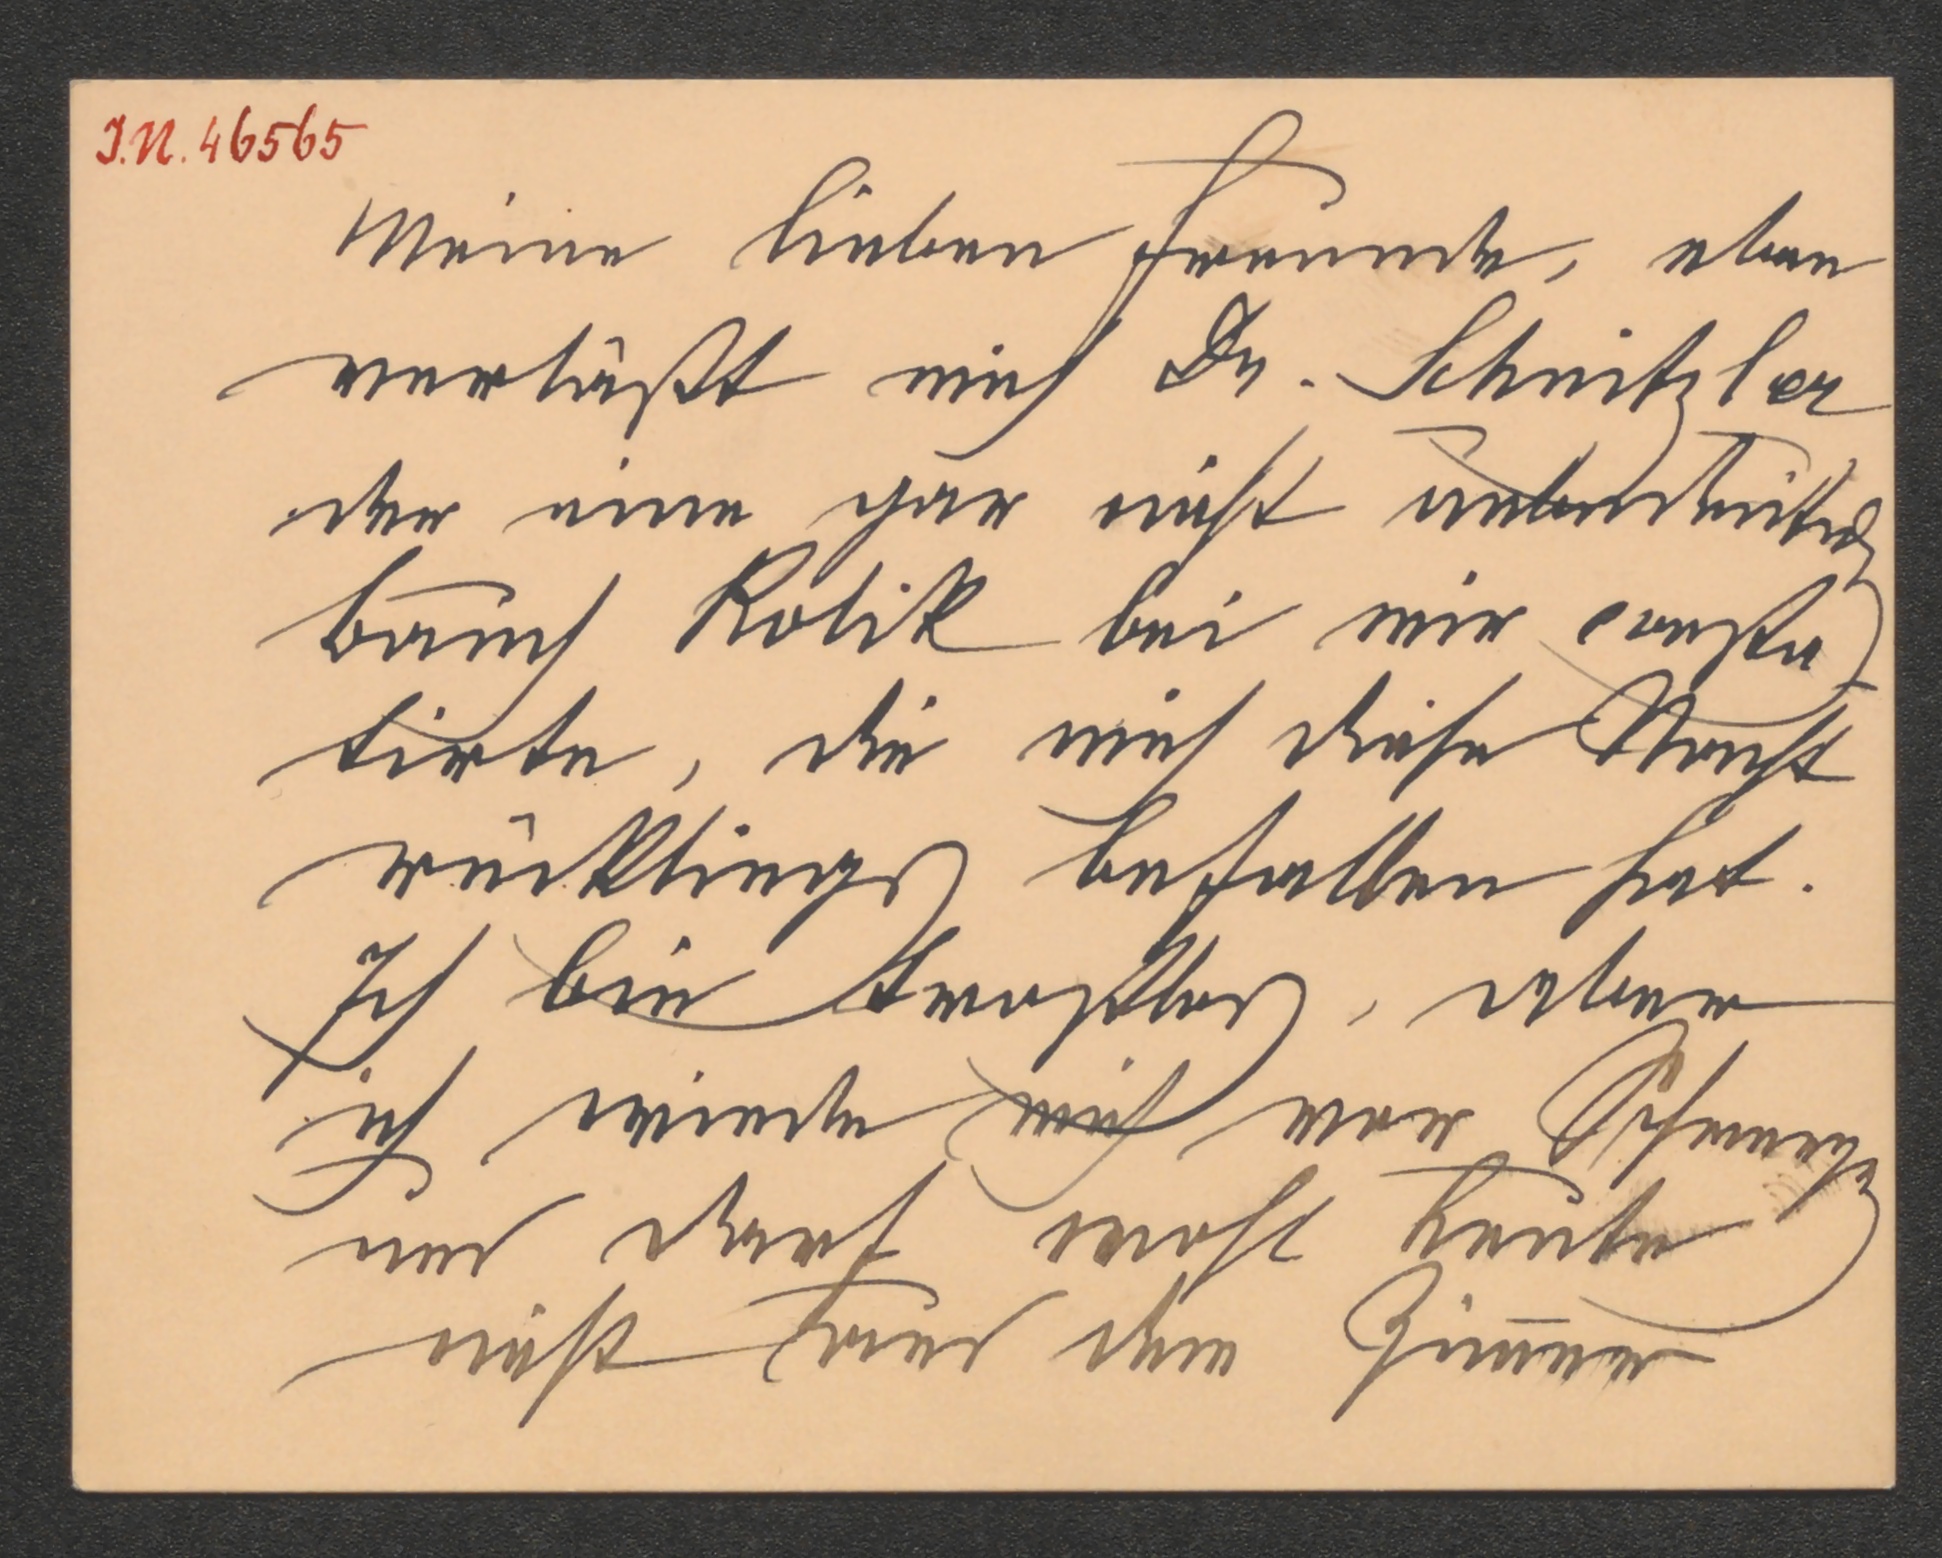 I.N. 46565
Meine lieben Freunde, eben
verläßt mich Dr. Schnitzler
der eine gar nicht unbedeutende
Bauch Kolik bei mir consta
tirte, die mich diese Nacht
rücklings befallen hat.
Ich bin trostlos, aber
ich winde mich vor Schmerz
und darf wohl heute
nicht aus dem Zim̅er